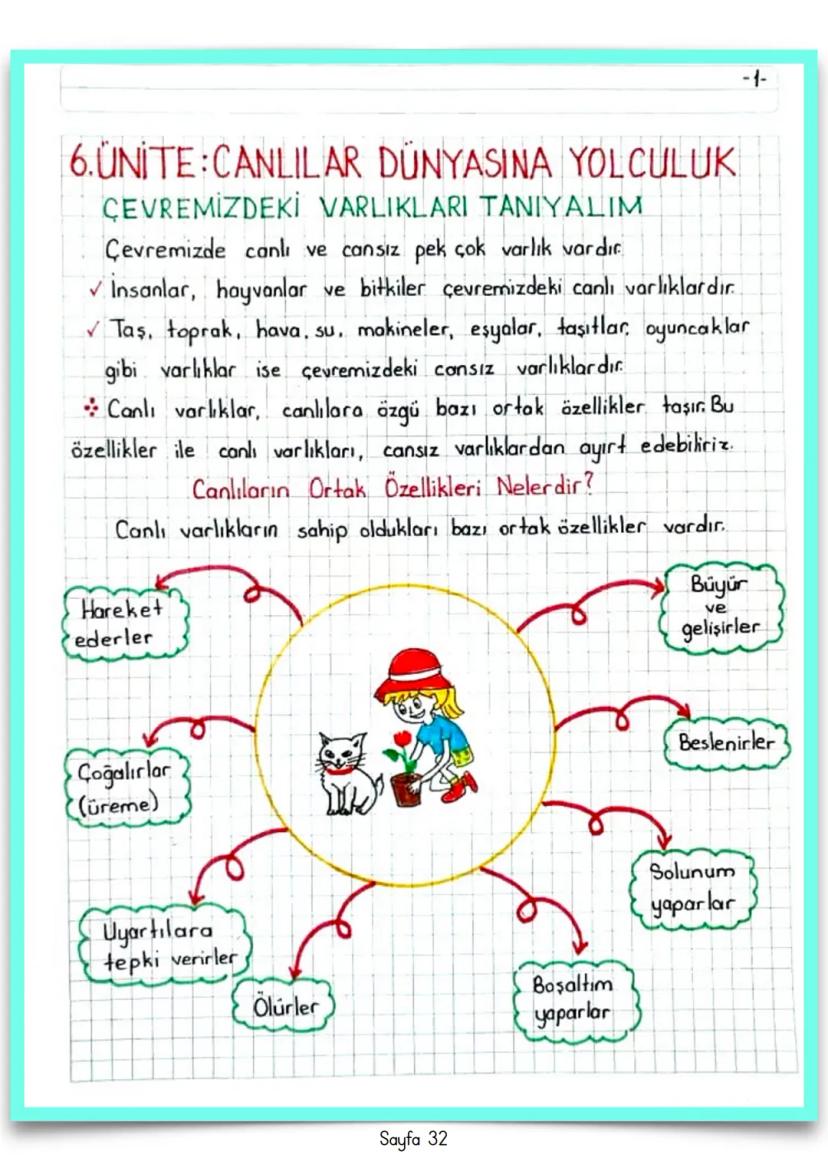 -1-
6.ÜNİTE:CANLILAR DÜNYASINA YOLCULUK
ÇEVREMİZDEKİ VARLIKLARI TANIYALIM
Çevremizde canlı ve cansız pek çok varlık vardır.
✓ İnsanlar, hayvanlar ve bitkiler çevremizdeki canlı varlıklardır.
✓ Taş, toprak, hava, su, makineler, eşyalar, taşıtlar, oyuncaklar
gibi varlıklar ise çevremizdeki cansız varlıklardır.
Canlı varlıklar, canlılara özgü bazı ortak özellikler taşır. Bu
özellikler ile canlı varlıkları, cansız varlıklardan ayırt edebiliriz.
Canlıların Ortak Özellikleri Nelerdir?
Canlı varlıkların sahip oldukları bazı ortak özellikler vardır.
Hareket
ederler
Büyür
ve
gelişirler
Çoğalırlar
(üreme)
Beslenirler
Uyartılara
tepki verirler
Solunum
yaparlar
Ölürler
Boşaltım
yaparlar
Sayfa 32